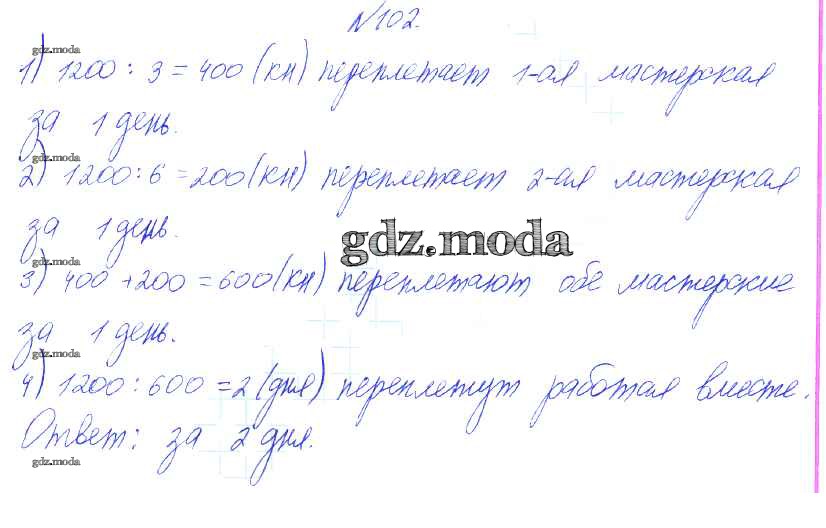 №102.
gdz.moda
1) 1200 : 3 = 400 (кн) переплетает 1-ая мастерская
за 1 день.
gdz.moda
2) 1200 : 6 = 200 (кн) переплетает 2-ая мастерская
за 1 день.
gdz.moda
gdz.moda
3) 400 + 200 = 600 (кн) переплетают обе мастерские
за 1 день.
gdz.moda
4) 1200 : 600 = 2 (дня) переплетут работая вместе.
Ответ: за 2 дня.
gdz.moda